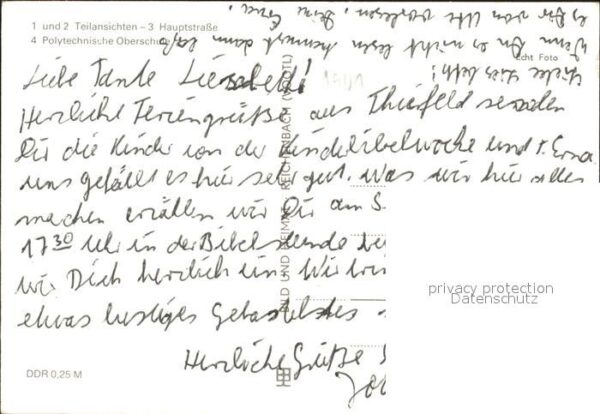 1 und 2 Teilansichten – 3 Hauptstraße
4 Polytechnische Oberschule
Echt Foto
Wenn Du es nicht lesen kannst dann laß
es Dir von Ute vorlesen, Deine Erna.
Liebe Tante Liesbeth!
Herzliche Feriengrüße aus Thierfeld senden
Dir die Kinder von der Kinderbibelwoche und T. Erna
uns gefällt es hier sehr gut. Was wir hier alles
machen erzällen wir Dir am S
17 30 Uhr in der Bibelstunde
wir Dich herzlich ein. Wir
etwas lustiges Gebasteltes
Herzliche Grüße
BILD UND HEIMAT REICHENBACH (VOGTL)
DDR 0,25 M
privacy protection
Datenschutz